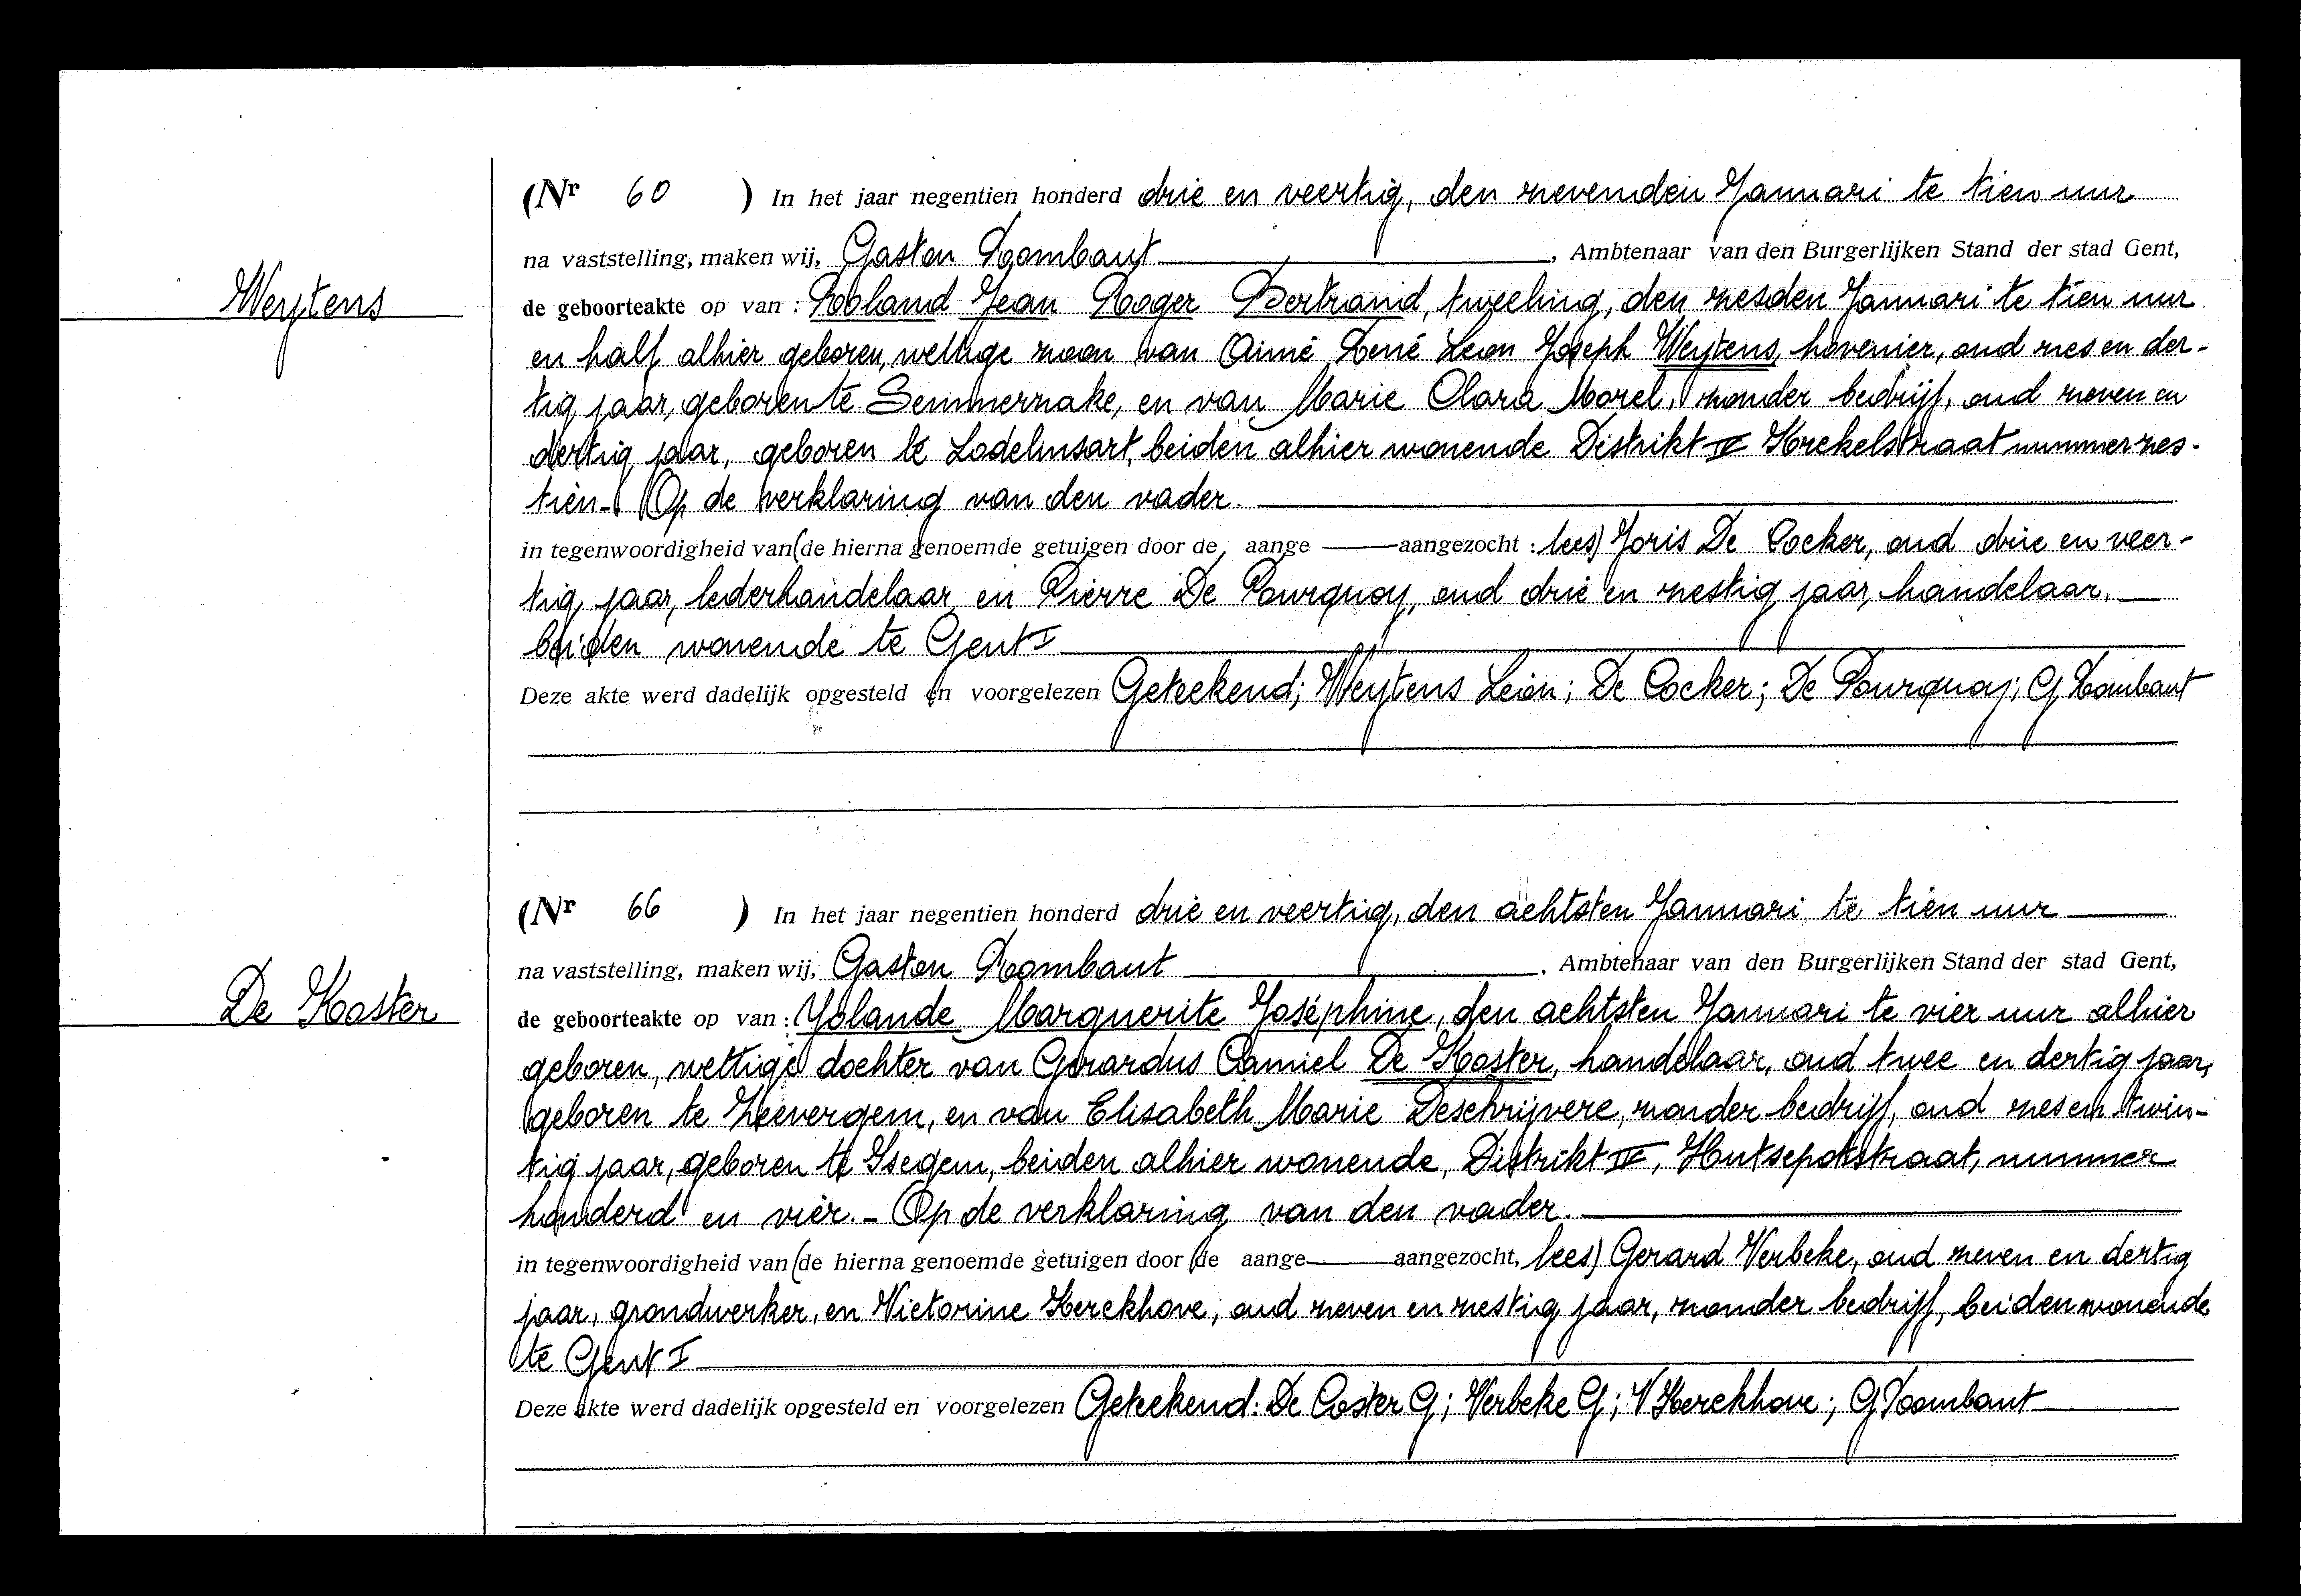 (Nr 60 ) In het jaar negentien honderd drie en veertig, den zevenden Januari te tien uur
na vaststelling, maken wij, Gaston Rombaut, Ambtenaar van den Burgerlijken Stand der stad Gent,
Weytens
de geboorteakte op van : Roland Jean Roger Bertrand, tweeling, den zesden Januari te tien uur
en half alhier geboren, wettige zoon van Aimé René Leon Joseph Weytens, hovenier, oud zes en der-
tig jaar, geboren te Semmerzake, en van Marie Clara Morel, zonder bedrijf, oud zeven en
dertig jaar, geboren te Lodelinsart, beiden alhier wonende Distrikt IV Krekelstraat nummer zes-
tien. Op de verklaring van den vader.
in tegenwoordigheid van (de hierna genoemde getuigen door de aange — aangezocht : lees) Joris De Cocker, oud drie en veer-
tig jaar, lederhandelaar en Pierre De Pourquoy, oud drie en zestig jaar, handelaar,
beiden wonende te Gent I
Deze akte werd dadelijk opgesteld en voorgelezen Geteekend; Weytens Leon; De Cocker; De Pourquoy; G Rombaut
(Nr 66 ) In het jaar negentien honderd drie en veertig, den achtsten Januari te tien uur
na vaststelling, maken wij, Gaston Rombaut, Ambtenaar van den Burgerlijken Stand der stad Gent,
De Koster
de geboorteakte op van : Yolande Marguerite Joséphine, den achtsten Januari te vier uur alhier
geboren, wettige dochter van Gerardus Camiel De Koster, handelaar, oud twee en dertig jaar,
geboren te Zeevergem, en van Elisabeth Marie Deschrijvere, zonder bedrijf, oud zes en twin-
tig jaar, geboren te Isegem, beiden alhier wonende, Distrikt IV, Hutsepotstraat, nummer
honderd en vier. - Op de verklaring van den vader.
in tegenwoordigheid van (de hierna genoemde getuigen door de aange — aangezocht, lees) Gerard Verbeke, oud zeven en dertig
jaar, grondwerker, en Victorine Kerckhove, oud zeven en zestig jaar, zonder bedrijf, beiden wonende
te Gent I
Deze akte werd dadelijk opgesteld en voorgelezen Geteekend: De Coster G; Verbeke G; V Kerckhove; G Rombaut